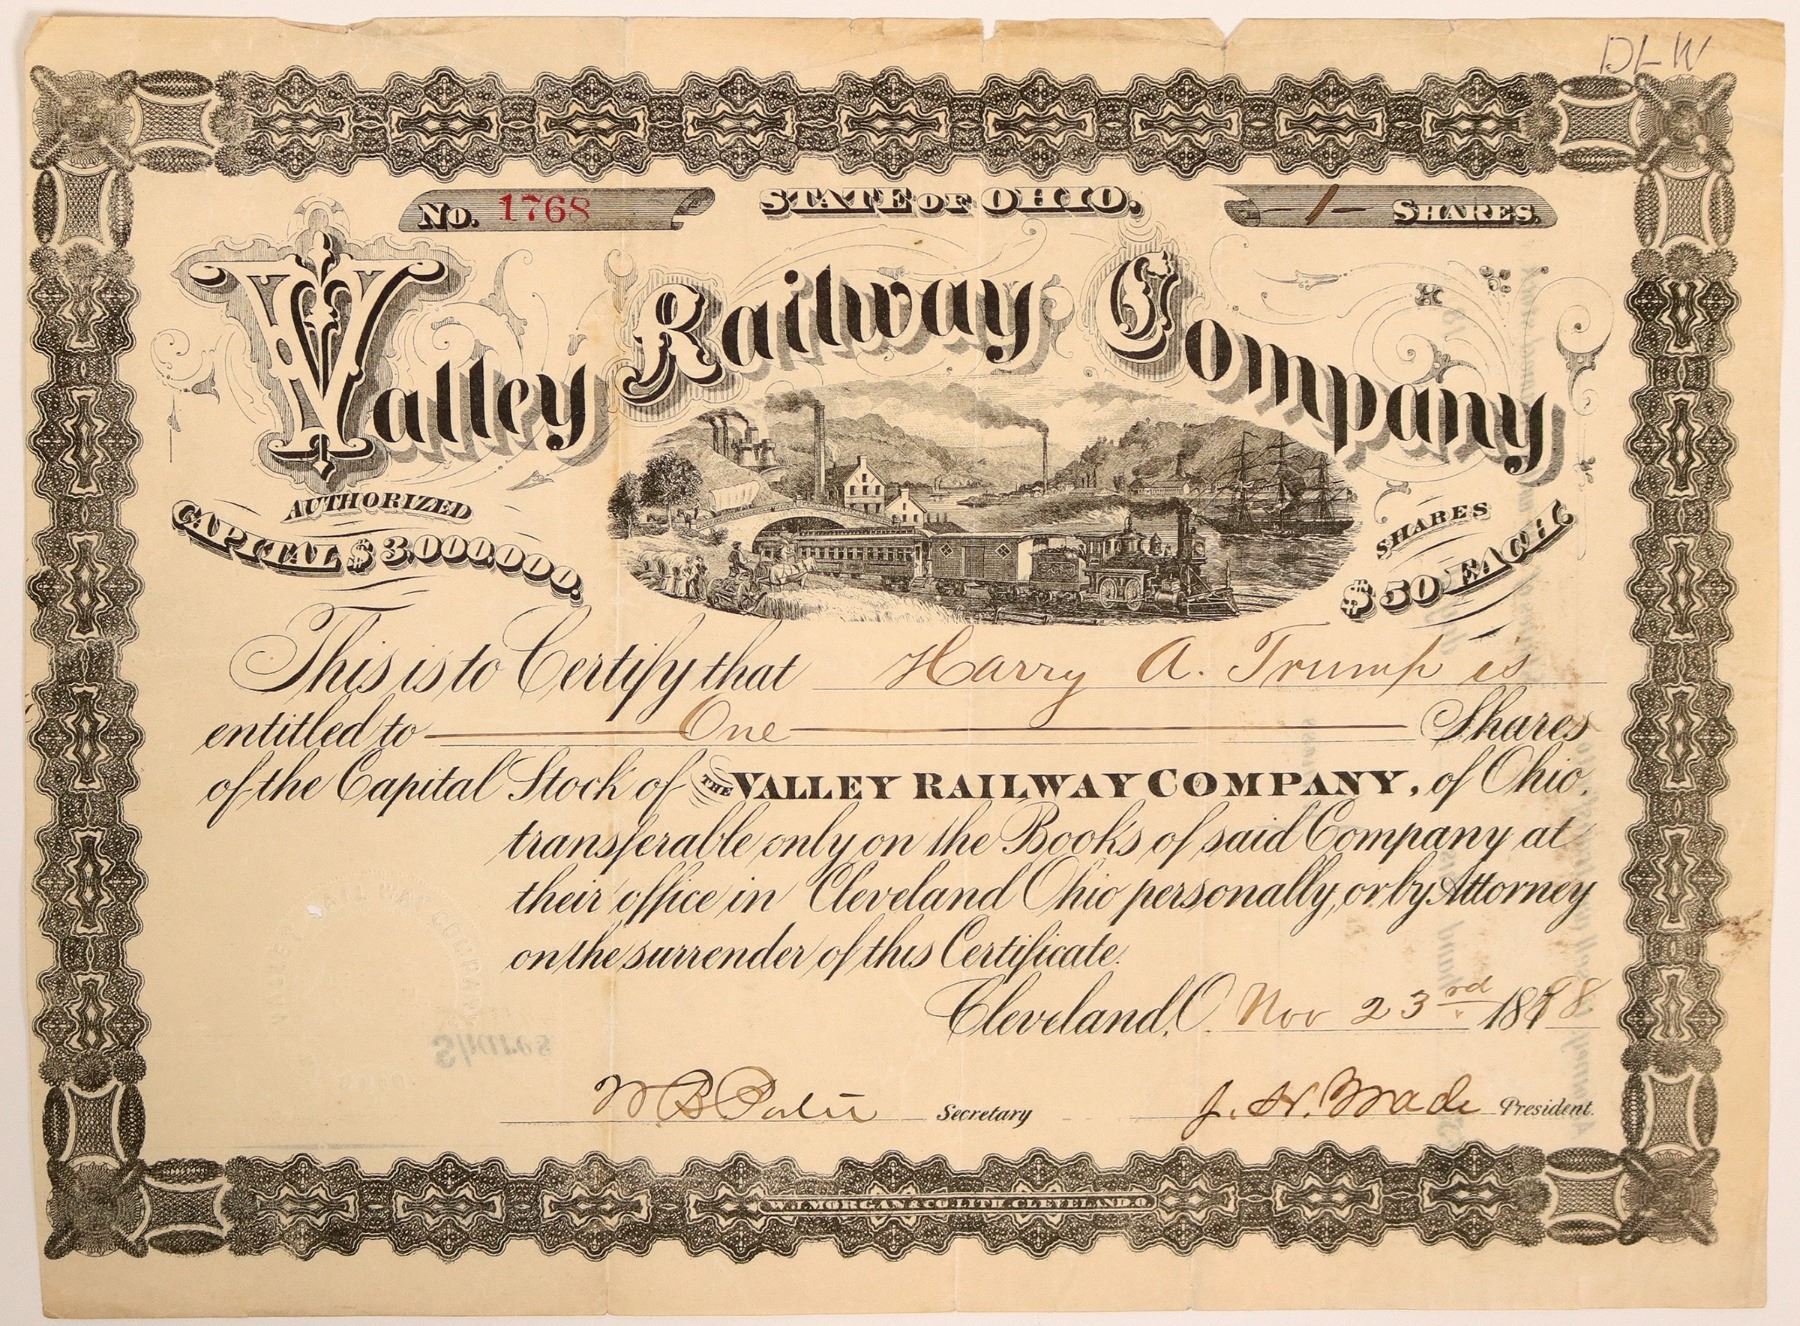 DLW
No. 1768
STATE OF OHIO,
-1- SHARES.
Valley Railway Company
AUTHORIZED
CAPITAL $3,000,000.
SHARES
$50 EACH.
This is to Certify that Harry A. Trump is
entitled to One Shares
of the Capital Stock of THE VALLEY RAILWAY COMPANY, of Ohio,
transferable only on the Books of said Company at
their office in Cleveland Ohio personally, or by Attorney
on the surrender of this Certificate.
Cleveland, O. Nov 23rd 1878
Shares
W B Secretary
J. H. Wade President.
W.J. MORGAN & CO. LITH. CLEVELAND. O.